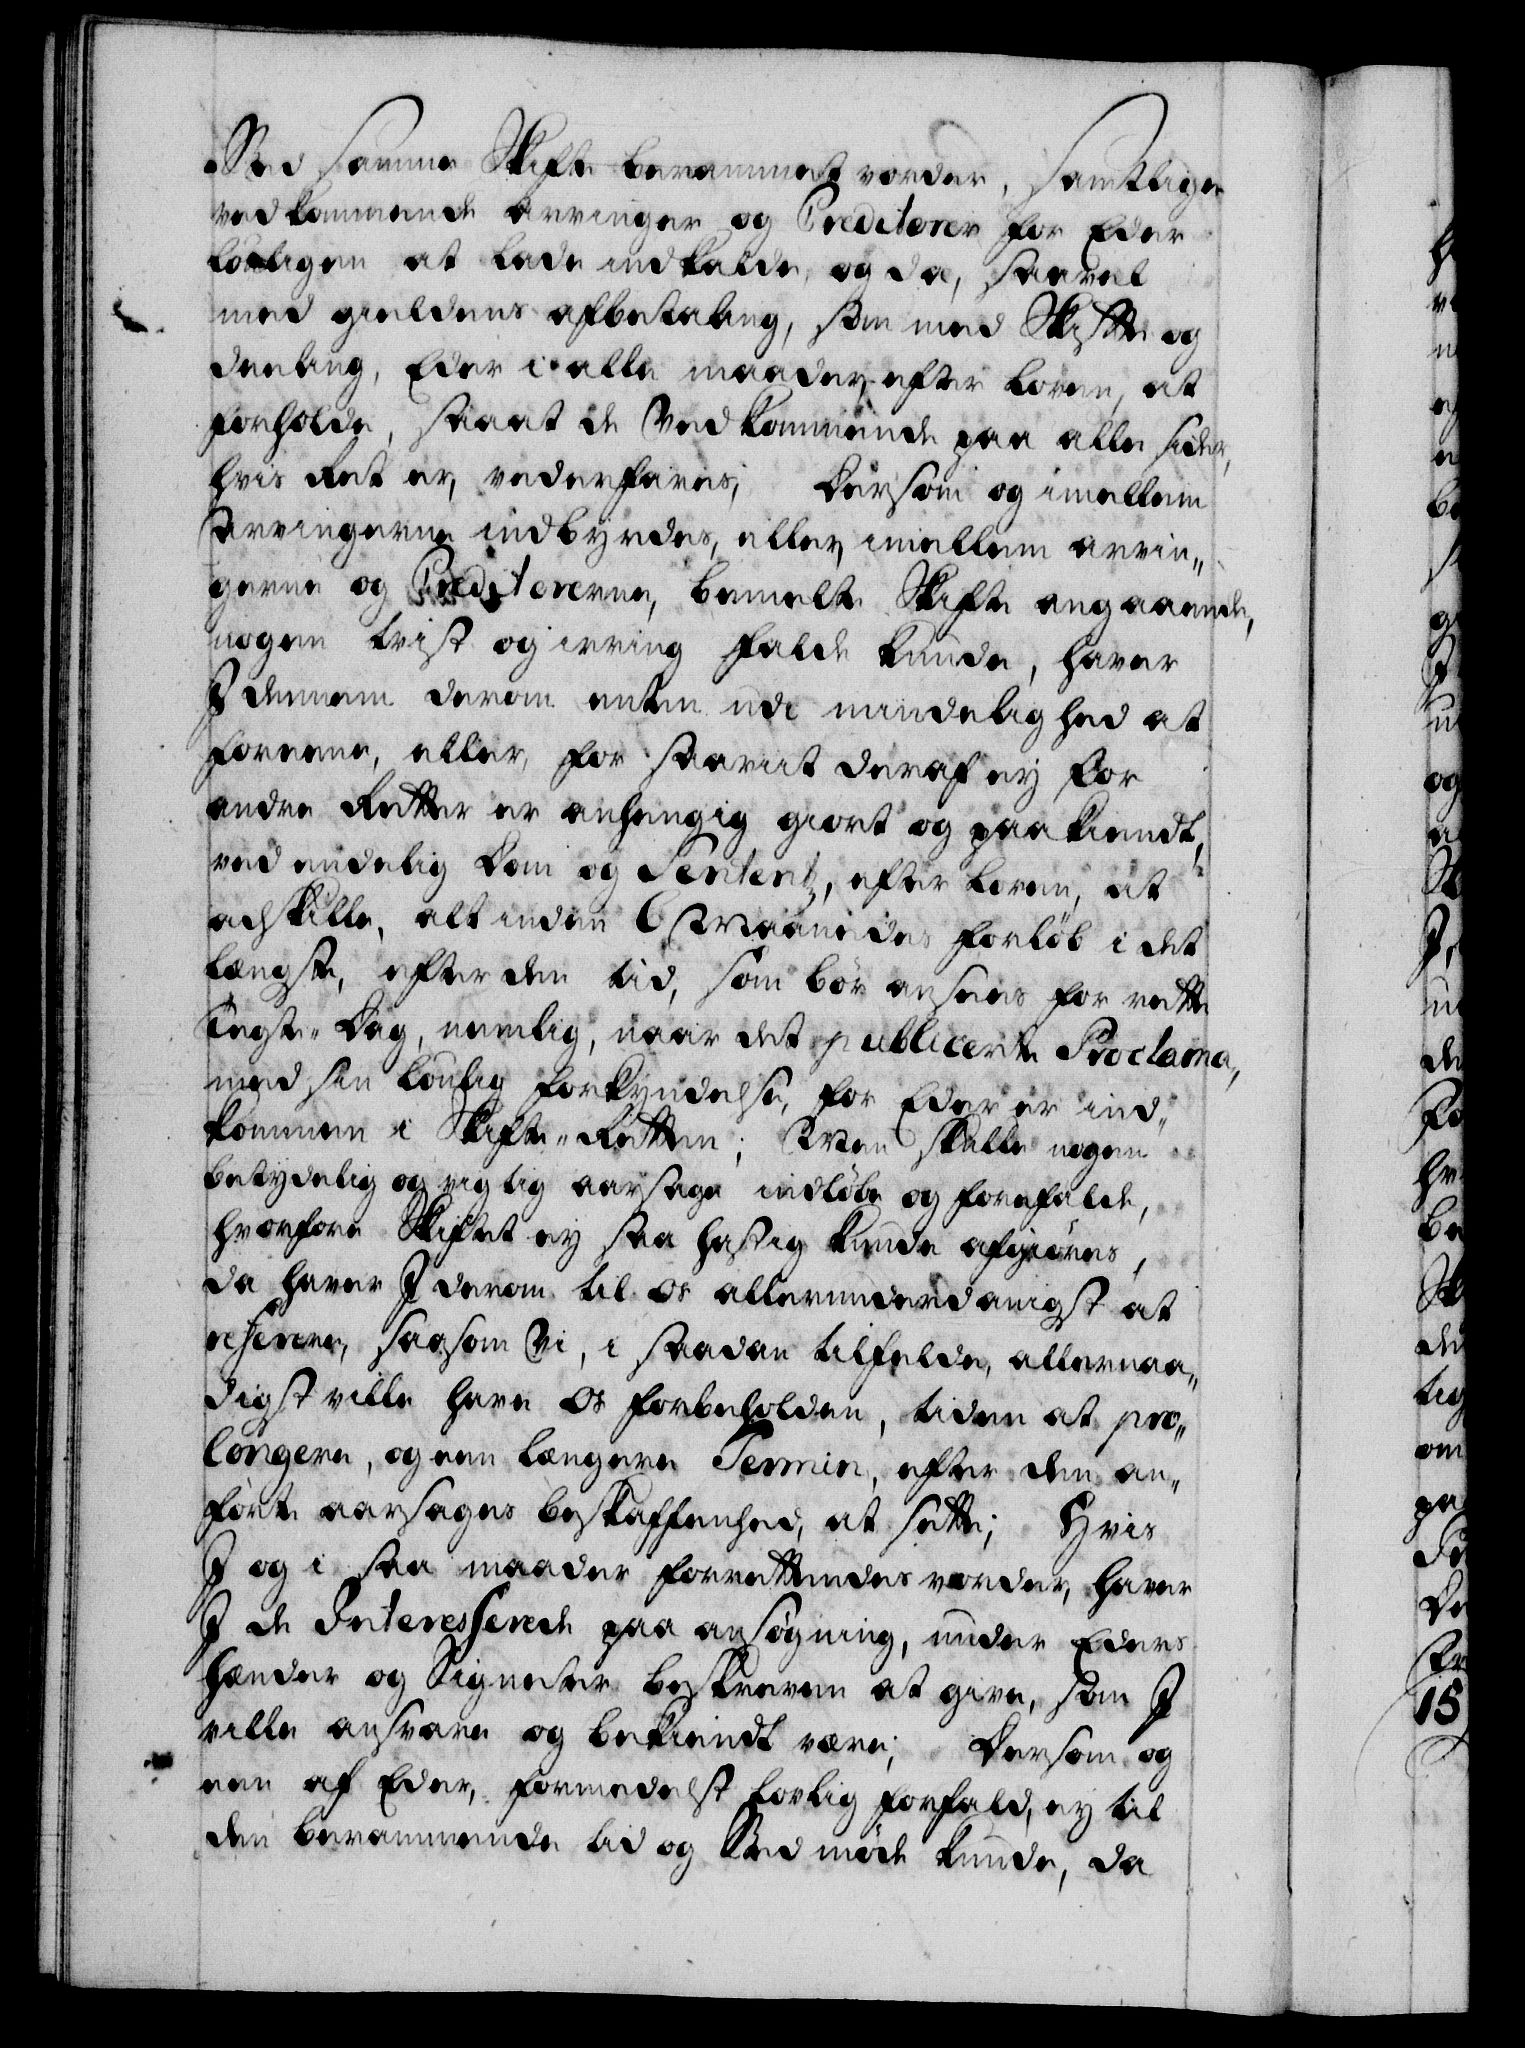 Sted samme Skifte berammet vorder, samtlige
vedkommende arvinger og Creditorer for Eder
lovligen at lade indkalde, og da, saavel
med gieldens afbetaling, som med Skifte og
deeling, Eder i alle maader, efter loven, at
forholde, saa at de Vedkommende paa alle sider,
hvis Ret er, vederfares; Dersom og imellem
Arvingerne indbyrdes, eller imellem arvin„
gerne og Creditorerne, bemelte Skifte angaaende,
nogen tvist og irring falde kunde, haver
I dennem derom enten udi mindelighed at
foreene, eller, for saavit deraf ey for
andre Retter er anhengig giort og paakiendt,
ved endelig Dom og Sententz, efter loven, at
adskille, alt inden 6 Maaneders forløb i det
længste, efter den tid, som bør ansees for rette
Tegte-Dag, nemlig, naar det publicerte Proclama,
med sin lovlig forkyndelse, for Eder er ind„
kommen i Skifte-Retten; Men skulle nogen
betydelig og vigtig aarsage indløbe og forefalde,
hvorfore Skiftet ey saa hastig kunde afgiøres,
da haver I derom til Os allerunderdanigst at
referere, saasom Vi, i saadan tilfelde, allernaa„
digst ville have Os forbeholden, tiden at pro„
longere, og een længere Termin, efter den an„
førte aarsages beskaffenhed, at sette; Hvis
I og i saa maader forrettendes vorder, haver
I de Interesserede paa ansøgning, under Eders
hænder og Signeter beskreven at give, som I
ville ansvare og bekiendt være; Dersom og
een af Eder, formedelst lovlig forfald, ey til
den berammende tid og Sted møde kunde, da